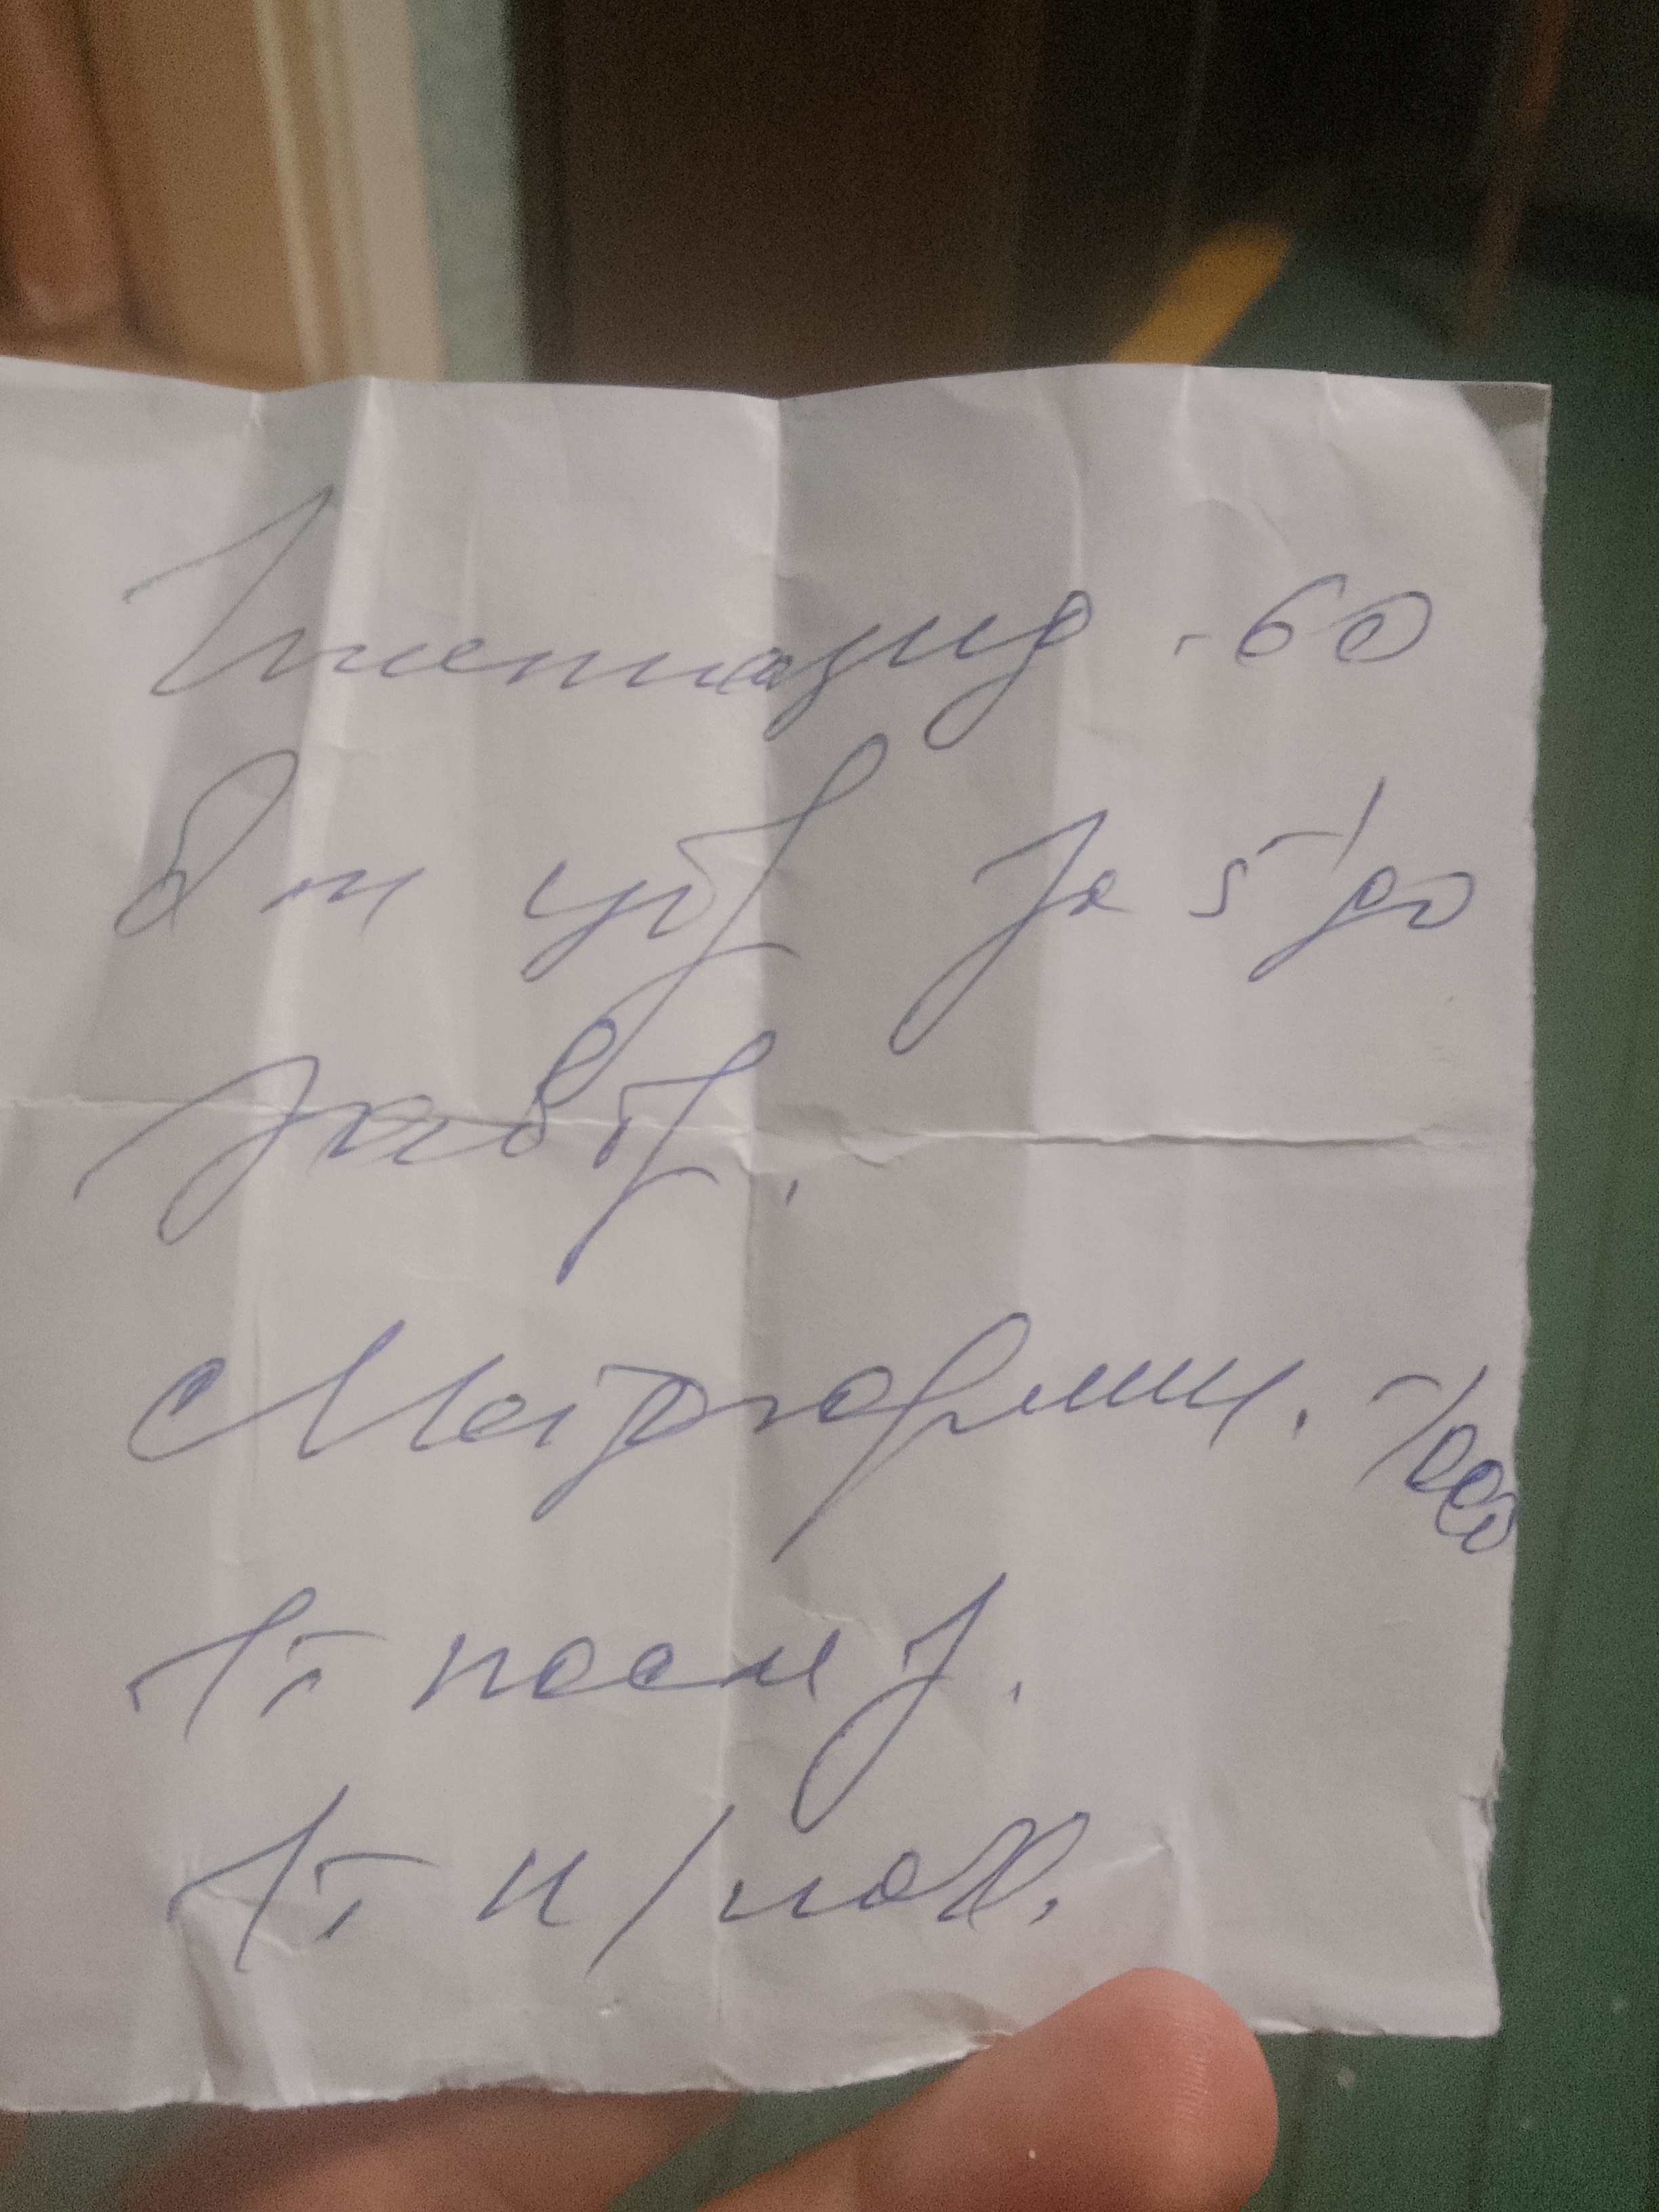 Гликлазид - 60
2 т утр за 5' до
завтр.
Метформин. 1000
1т после з.
1т н/ноч.